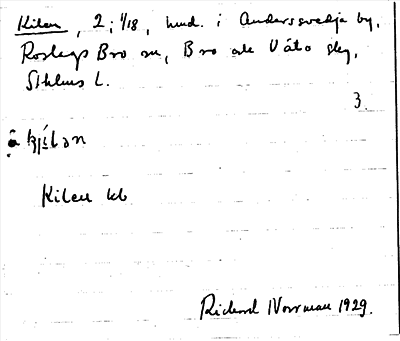 Kilen, 2; 1/18, hmd. i Anderssvedja by,
Roslags Bro sn, Bro ale Väto skg,
Sthlms L.
3.
Kilen kb
Richard Norrman 1929.